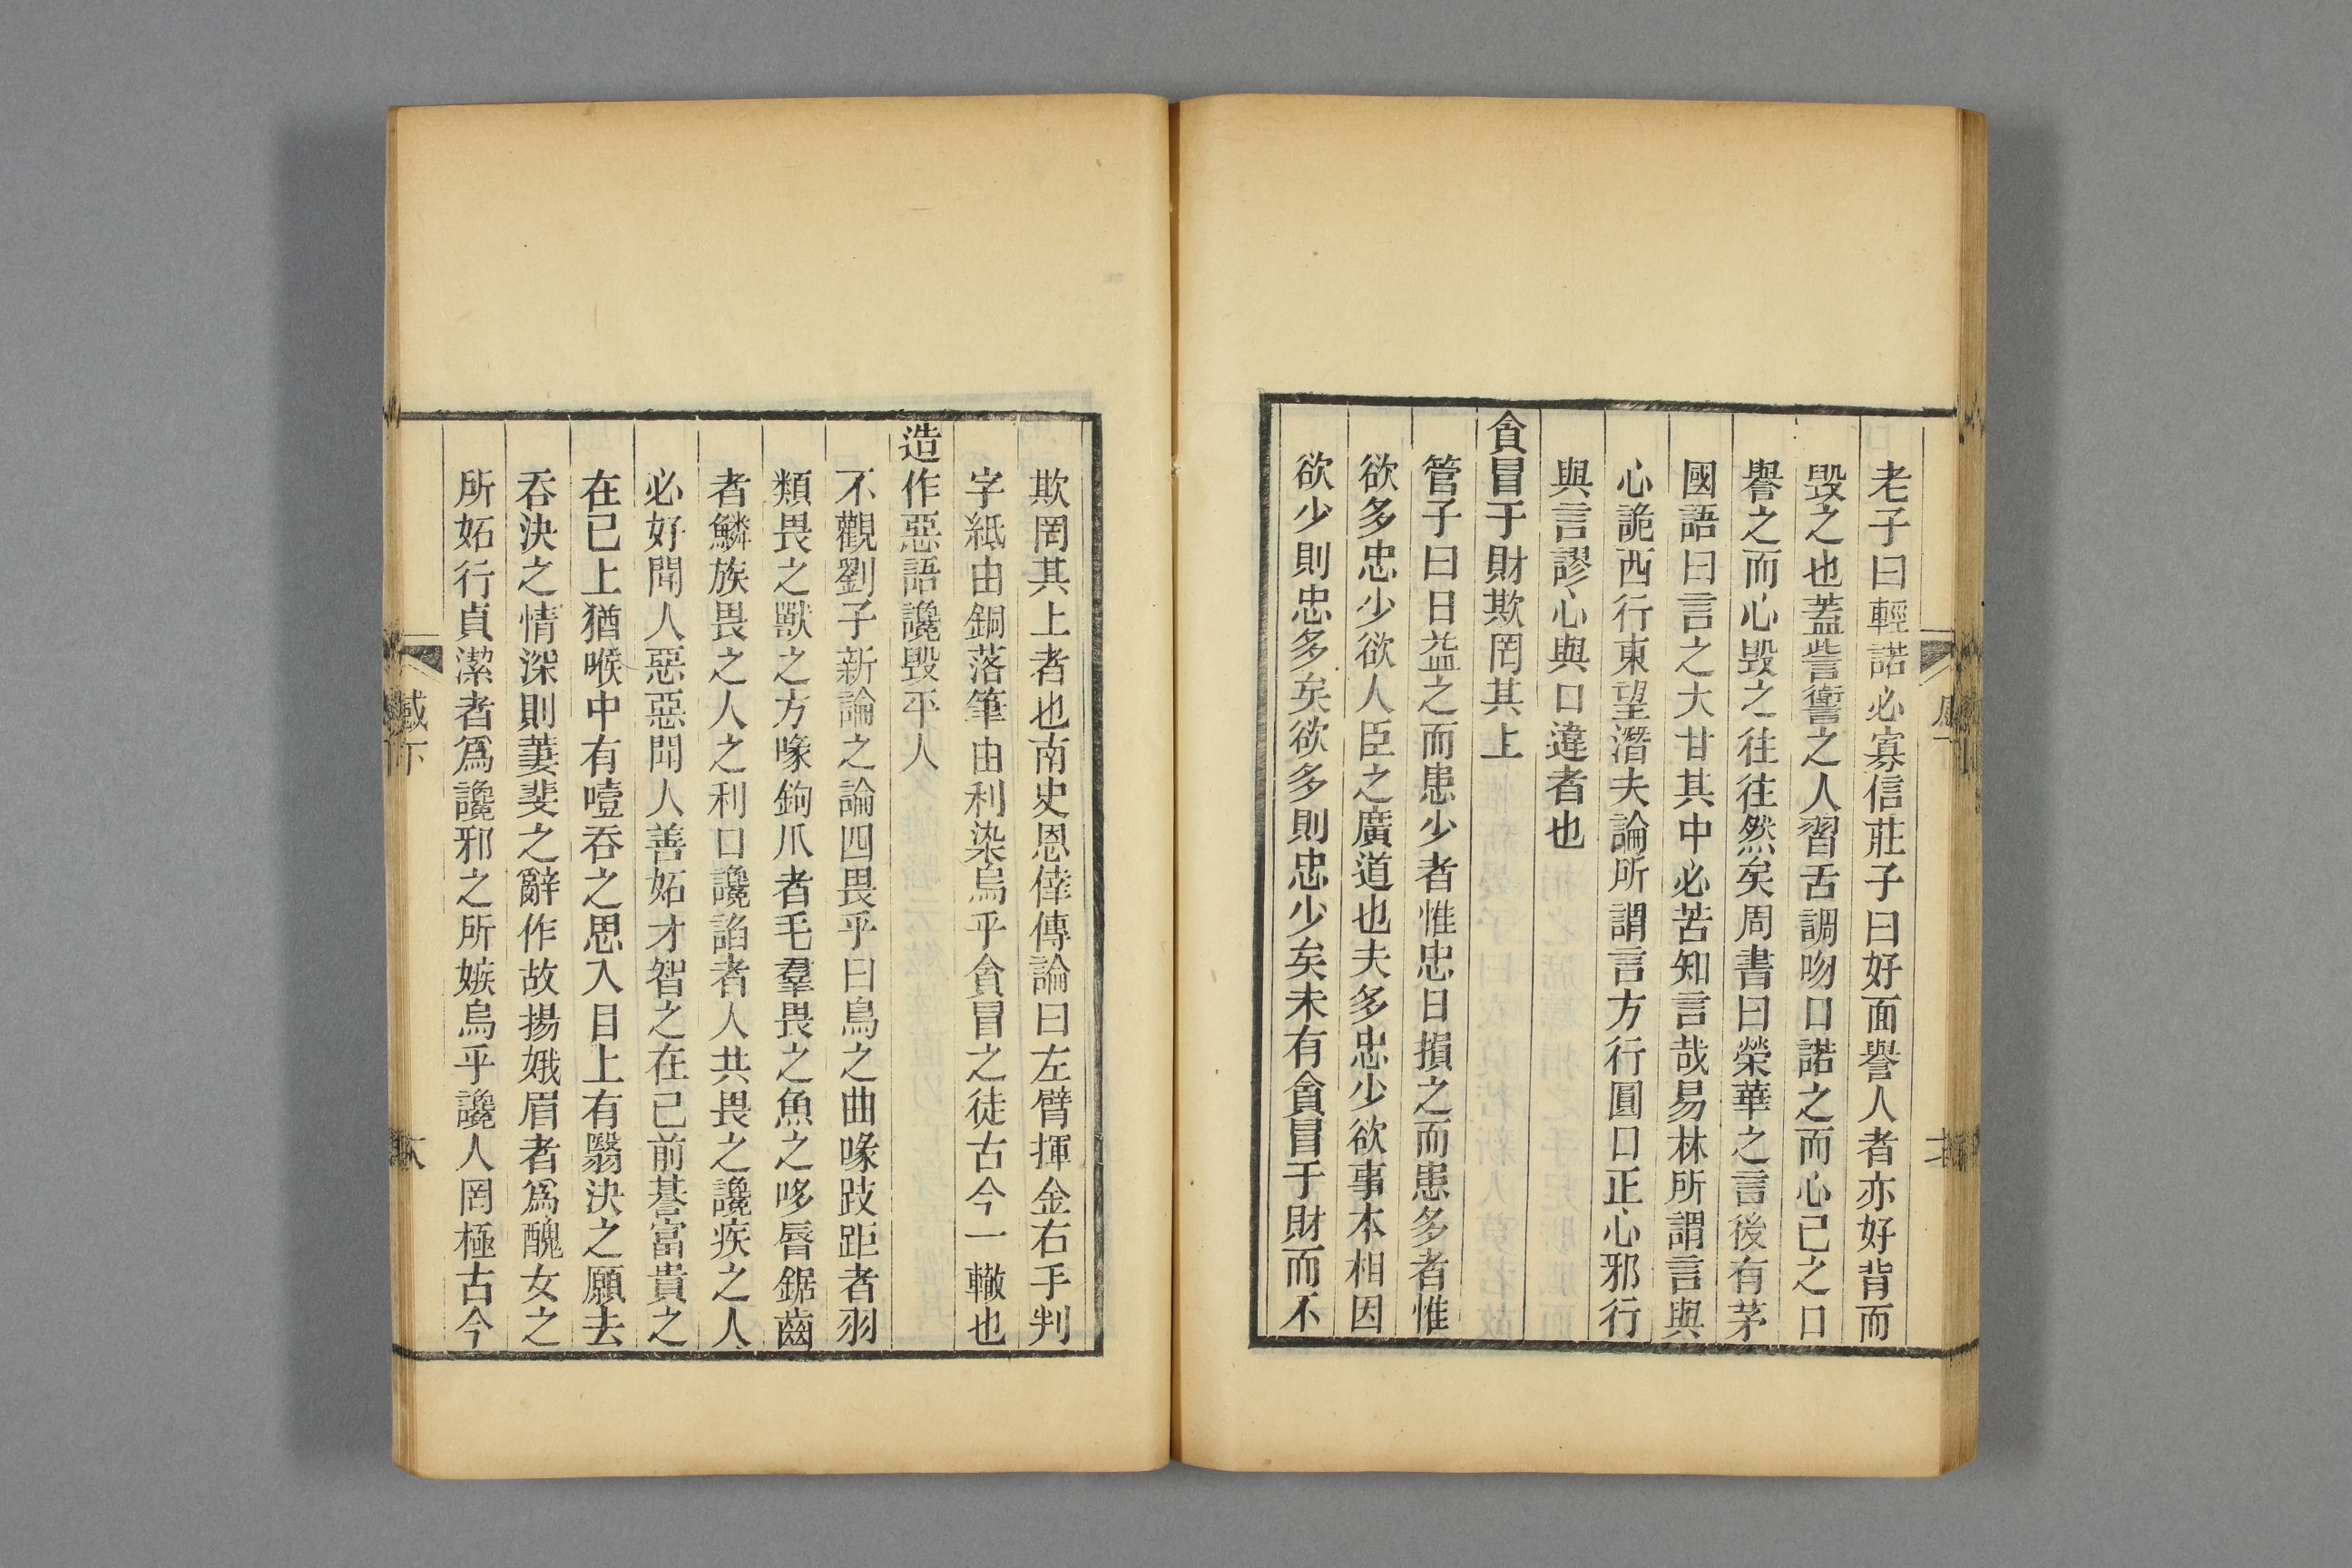 老子曰輕諾必寡信莊子曰好面譽人者亦好背而
毀之也蓋訾讆之人習舌調吻口諾之而心己之口
譽之而心毀之往往然矣周書曰榮華之言後有茅
國語曰言之大甘其中必苦知言哉易林所謂言與
心詭西行東望潛夫論所謂言方行圓口正心邪行
與言謬心與口違者也
貪冒于財欺罔其上
管子曰日益之而患少者惟忠日損之而患多者惟
欲多忠少欲人臣之廣道也夫多忠少欲事本相因
欲少則忠多矣欲多則忠少矣未有貪冒于財而不
欺罔其上者也南史恩倖傳論曰左臂揮金右手判
字紙由銅落筆由利染烏乎貪冒之徒古今一轍也
造作惡語讒毀平人
不觀劉子新論之論四畏乎曰鳥之曲喙跂距者羽
類畏之獸之方喙鉤爪者毛羣畏之魚之哆唇鋸齒
者鱗族畏之人之利口讒諂者人共畏之讒疾之人
必好聞人惡惡聞人善妬才智之在己前惎富貴之
在己上猶喉中有噎吞之思入目上有翳決之願去
吞決之情深則萋斐之辭作故揚娥眉者爲醜女之
所妬行貞潔者爲讒邪之所嫉烏乎讒人罔極古今
感下
六